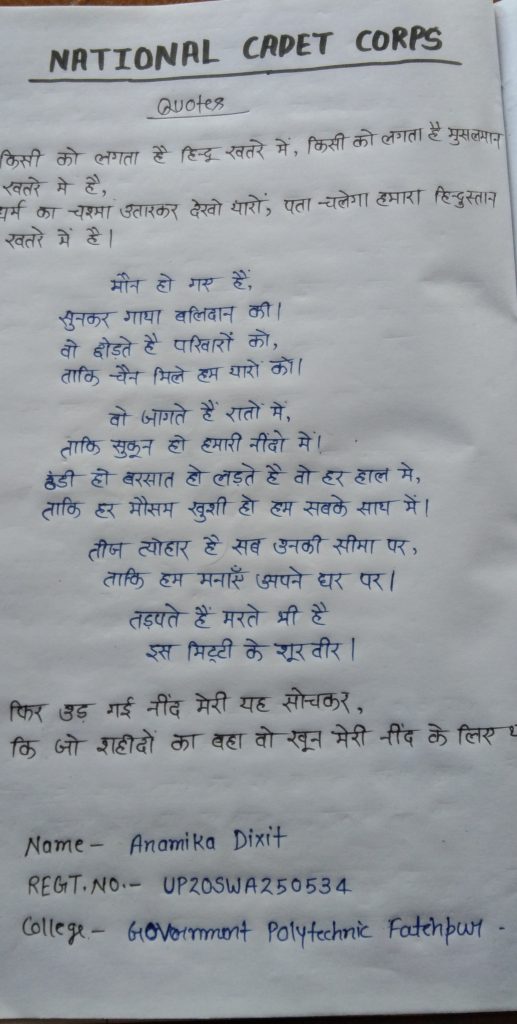 NATIONAL CADET CORPS
Quotes
किसी को लगता है हिन्दू खतरे में, किसी को लगता है मुसलमान
खतरे मे है,
धर्म का चश्मा उतारकर देखो यारों, पता चलेगा हमारा हिन्दुस्तान
खतरे में है।
मौन हो गए हैं,
सुनकर गाथा बलिदान की।
वो छोड़ते है परिवारों को,
ताकि चैन मिले हम यारों को।
वो जागते हैं रातों में,
ताकि सुकून हो हमारी नींदो में।
ठंडी हो बरसात हो लड़ते है वो हर हाल मे,
ताकि हर मौसम खुशी हो हम सबके साथ में।
तीज त्योहार है सब उनकी सीमा पर,
ताकि हम मनाएँ अपने घर पर।
तड़पते हैं मरते भी है
इस मिट्टी के शूरवीर।
फिर उड़ गई नींद मेरी यह सोचकर,
कि जो शहीदों का बहा वो खून मेरी नींद के लिए
Name - Anamika Dixit
REGT.NO. - UP20SWA250534
College - Government Polytechnic Fatehpur -